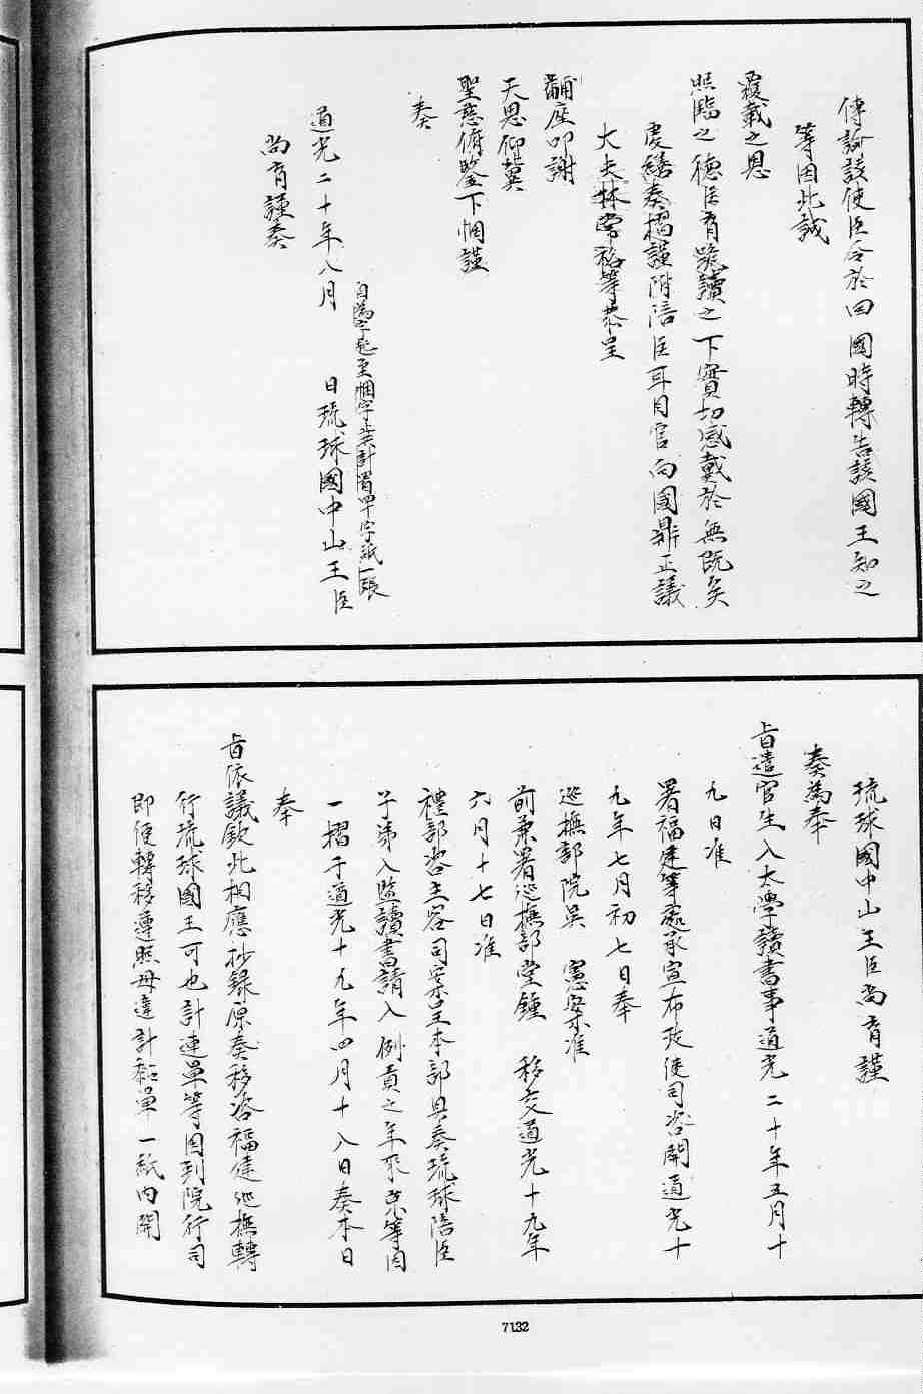 傳諭該使臣令於回國時轉告該國王知之
等因此誠
覆載之恩
照臨之德臣育跪讀之下實切感戴於無既矣
虔繕奏摺謹附陪臣耳目官向國鼎正議
大夫林常裕等恭呈
黼座叩謝
天恩仰冀
聖慈俯鑒下悃謹
奏
自為字起至悃字止共計 字紙一張
道光二十年八月 日琉球國中山王臣
尚育謹奏
琉球國中山王臣尚育謹
奏為奉
旨遣官生入太學讀書事道光二十年五月十
九日准
署福建等處承宣布政使司咨開道光十
九年七月初七日奉
巡撫部院吳 憲案准
前兼署巡撫部堂鍾 移交道光十九年
六月十七日准
禮部咨主客司案呈本部具奏琉球陪臣
子弟入監讀書請入例貢之年來京等因
一摺于道光十九年四月十八日奏本日
奉
旨依議欽此相應抄錄原奏移咨福建巡撫轉
行琉球國王可也計連單等因到院行司
即便轉移遵照毋違計粘單一紙內開
7132